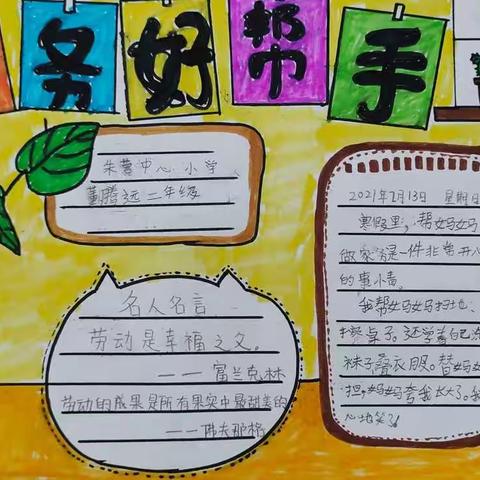 务好帮手
朱薯中心小学
董腾远二年级
名人名言
劳动是幸福之父。
——富兰克林
劳动的成果是所有果实中最甜美的
——沛夫那格
2021年2月13日 星期日
寒假里,帮妈妈
做家务是一件非常开心
的事情。
我帮妈妈扫地、
擦桌子。还学着自己洗
袜子叠衣服。替妈妈
把,妈妈夸我长大了。我
心地笑了